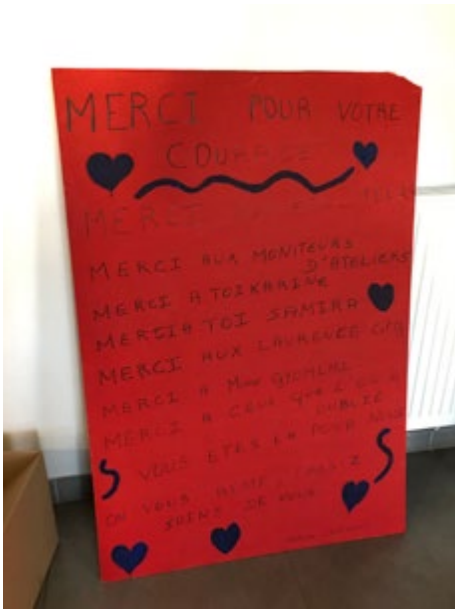 MERCI POUR VOTRE
COURAGE
MERCI
MERCI AUX MONITEURS
D'ATELIERS
MERCI A TOI KARINE
MERCI A TOI SAMIRA
MERCI AUX LAURENCE
MERCI A Mme
MERCI A CEUX QUE L'ON A
OUBLIE
VOUS ETES LA POUR NOUS
ON VOUS AIME PRENEZ
SOINS DE VOUS